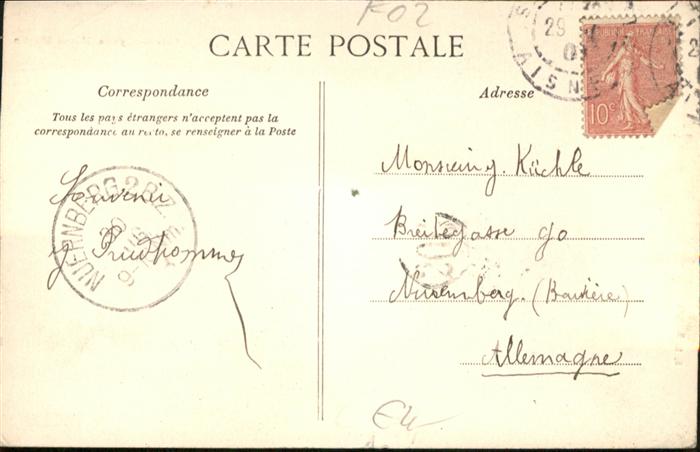 K02
CARTE POSTALE
Correspondance
Tous les pays étrangers n'acceptent pas la
correspondance au recto, se renseigner à la Poste
Souvenir
y Prudhommes
NUERNBERG 2 B.Z.
Adresse
29
REPUBLIQUE FRANÇAISE
10c
Monsieur J. Küchle
Breitegasse 90
Nuremberg. (Bavière)
Allemagne